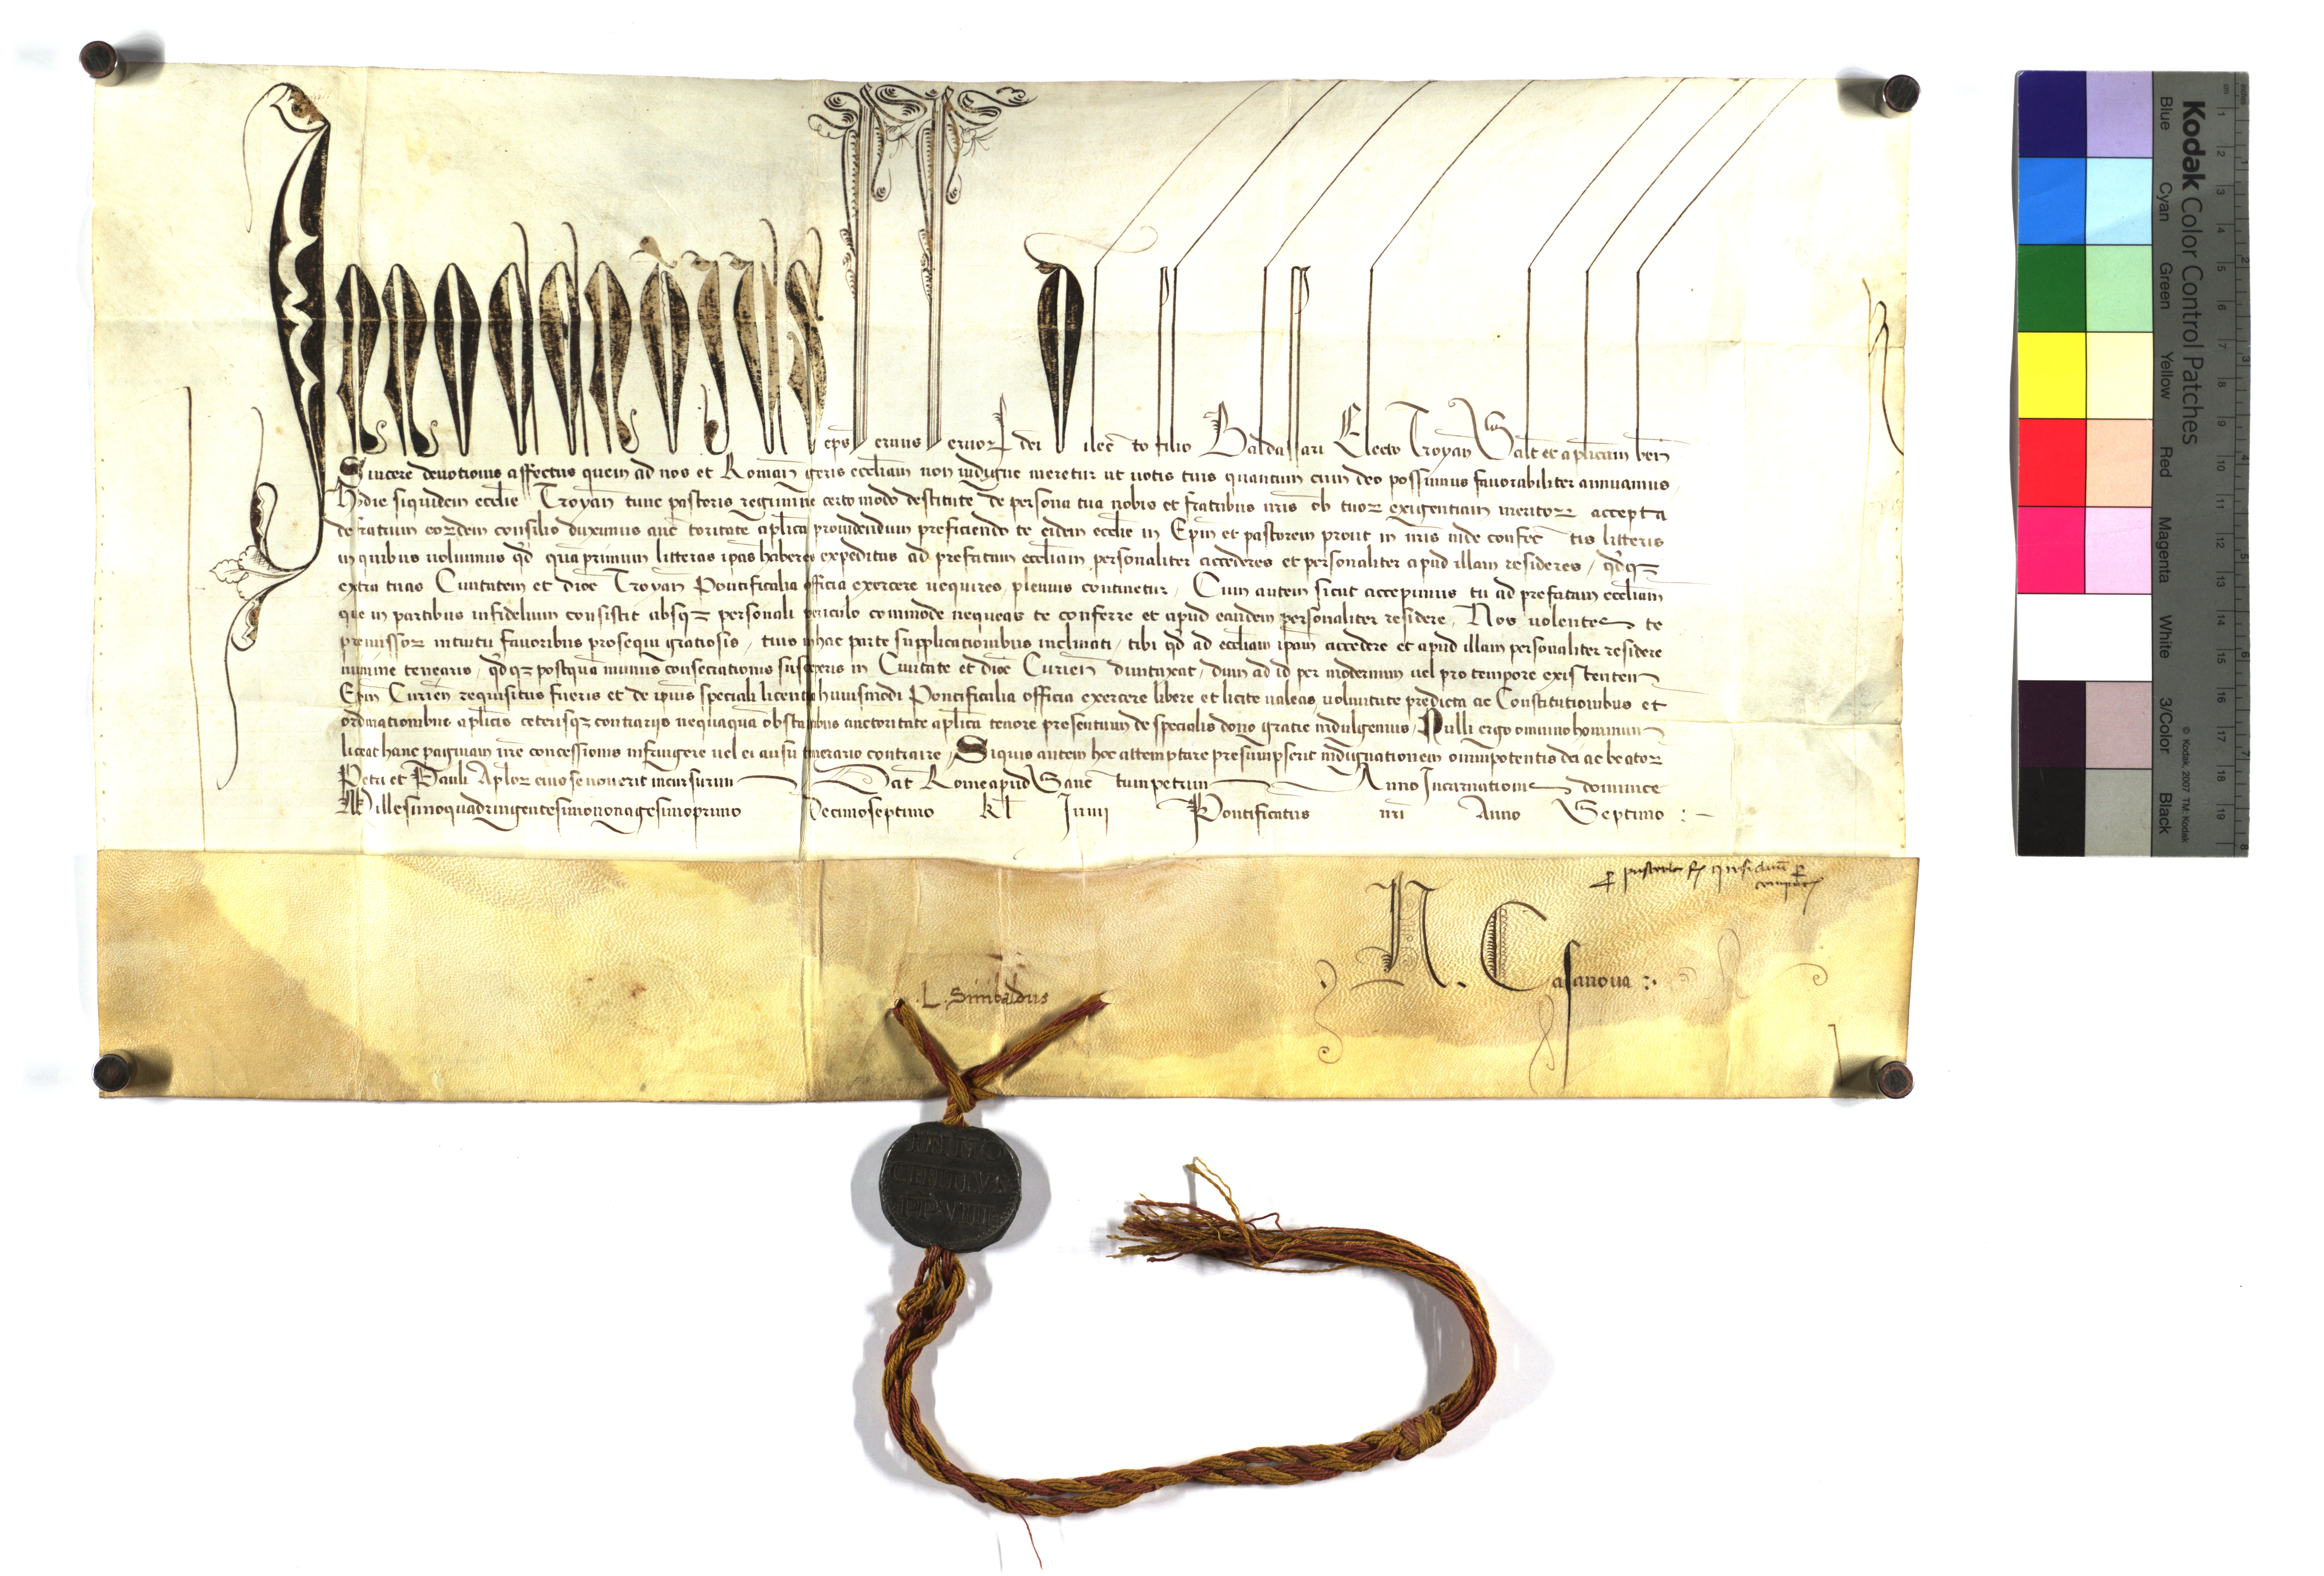 Innocentius eps seruus seruoꝝ dei Dilecto filio Baldassari Electo Troyan̄ Salt̄ et aplicam ben̄
Sincere deuotionis affectus quem ad nos et Roman̄ geris eccliam non indigne meretur ut uotis tuis quantum cum deo possumus fauorabiliter annuamus
Hodie siquidem ecclie Troyan̄ tunc pastoris regimine certo modo destitute de persona tua nobis et fratribus nr̄is ob tuoꝝ exigentiam meritoꝝ accepta
de fratrum eoꝝdem consilio duximus auctoritate aplica prouidendum preficiendo te eidem ecclie in Epm et pastorem prout in nr̄is inde confectis litteris
in quibus uolumus qd quāprimum litteras ipas haberes expeditas ad prefatam eccliam personaliter accederes et personaliter apud illam resideres, qdqꝫ
extra tuas Ciuitatem et dioc̄ Troyan̄ Pontificalia officia exercere nequires, plenius continetur. Cum autem sicut accepimus tu ad prefatam eccliam
que in partibus infidelium consistit absqꝫ personali periculo commode nequeas te conferre et apud eandem personaliter residere, Nos uolentes te
premissoꝝ intuitu fauoribus prosequi gratiosis, tuis in hac parte supplicationibus inclinati, tibi qd ad eccliam ipam accedere et apud illam personaliter residere
minime tenearis, qdqꝫ postquā munus consecrationis susceperis in Ciuitate et dioc̄ Curien̄ duntaxat, dum ad id per modernum uel pro tempore existentem
Epm Curien̄ requisitus fueris et de ipius speciali licentia huiusmodi Pontificalia officia exercere libere et licite ualeas, uoluntate predicta ac Constitutionibus et
ordinationibus aplicis ceterisqꝫ contrarijs nequaquā obstantibus auctoritate aplica tenore presentium de specialis dono gratie indulgemus, Nulli ergo omnino hominum
liceat hanc paginam nr̄e concessionis infringere uel ei ausu temerario contraire, Siquis autem hoc attemptare presumpserit indignationem omnipotentis dei ac beatoꝝ
Petri et Pauli Aploꝝ eius se nouerit incursurum Dat̄ Rome apud Sanctumpetrum Anno Incarnationis dominice
Millesimoquadringentesimononagesimoprimo Decimoseptimo kl Iunij Pontificatus nr̄i Anno Septimo :-
N. Casanoua :.
.L. Sinibaldus
INNO
CENTIVS
PP VIII
Kodak Color Control Patches
Blue Cyan Green Yellow Red Magenta White 3/Color Black
© Kodak, 2007 TM: Kodak
1 2 3 4 5 6 7 8 9 10 11 12 13 14 15 16 17 18 19